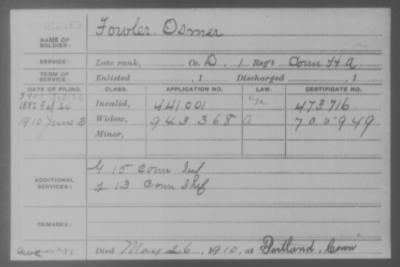 NAME OF SOLDIER: Fowler Osmer
SERVICE: Late rank, Co. D, 1 Reg't Conn H A
TERM OF SERVICE: Enlisted , 1 Discharged , 1
DATE OF FILING. CLASS. APPLICATION NO. LAW. CERTIFICATE NO.
1882 26 Invalid, 441001 473716
1910 June Widow, 943368 a 700949
Minor,
ADDITIONAL SERVICES: G 15 Conn Inf
13 Conn Inf
REMARKS:
Died May 26, 1910, at Portland, Conn